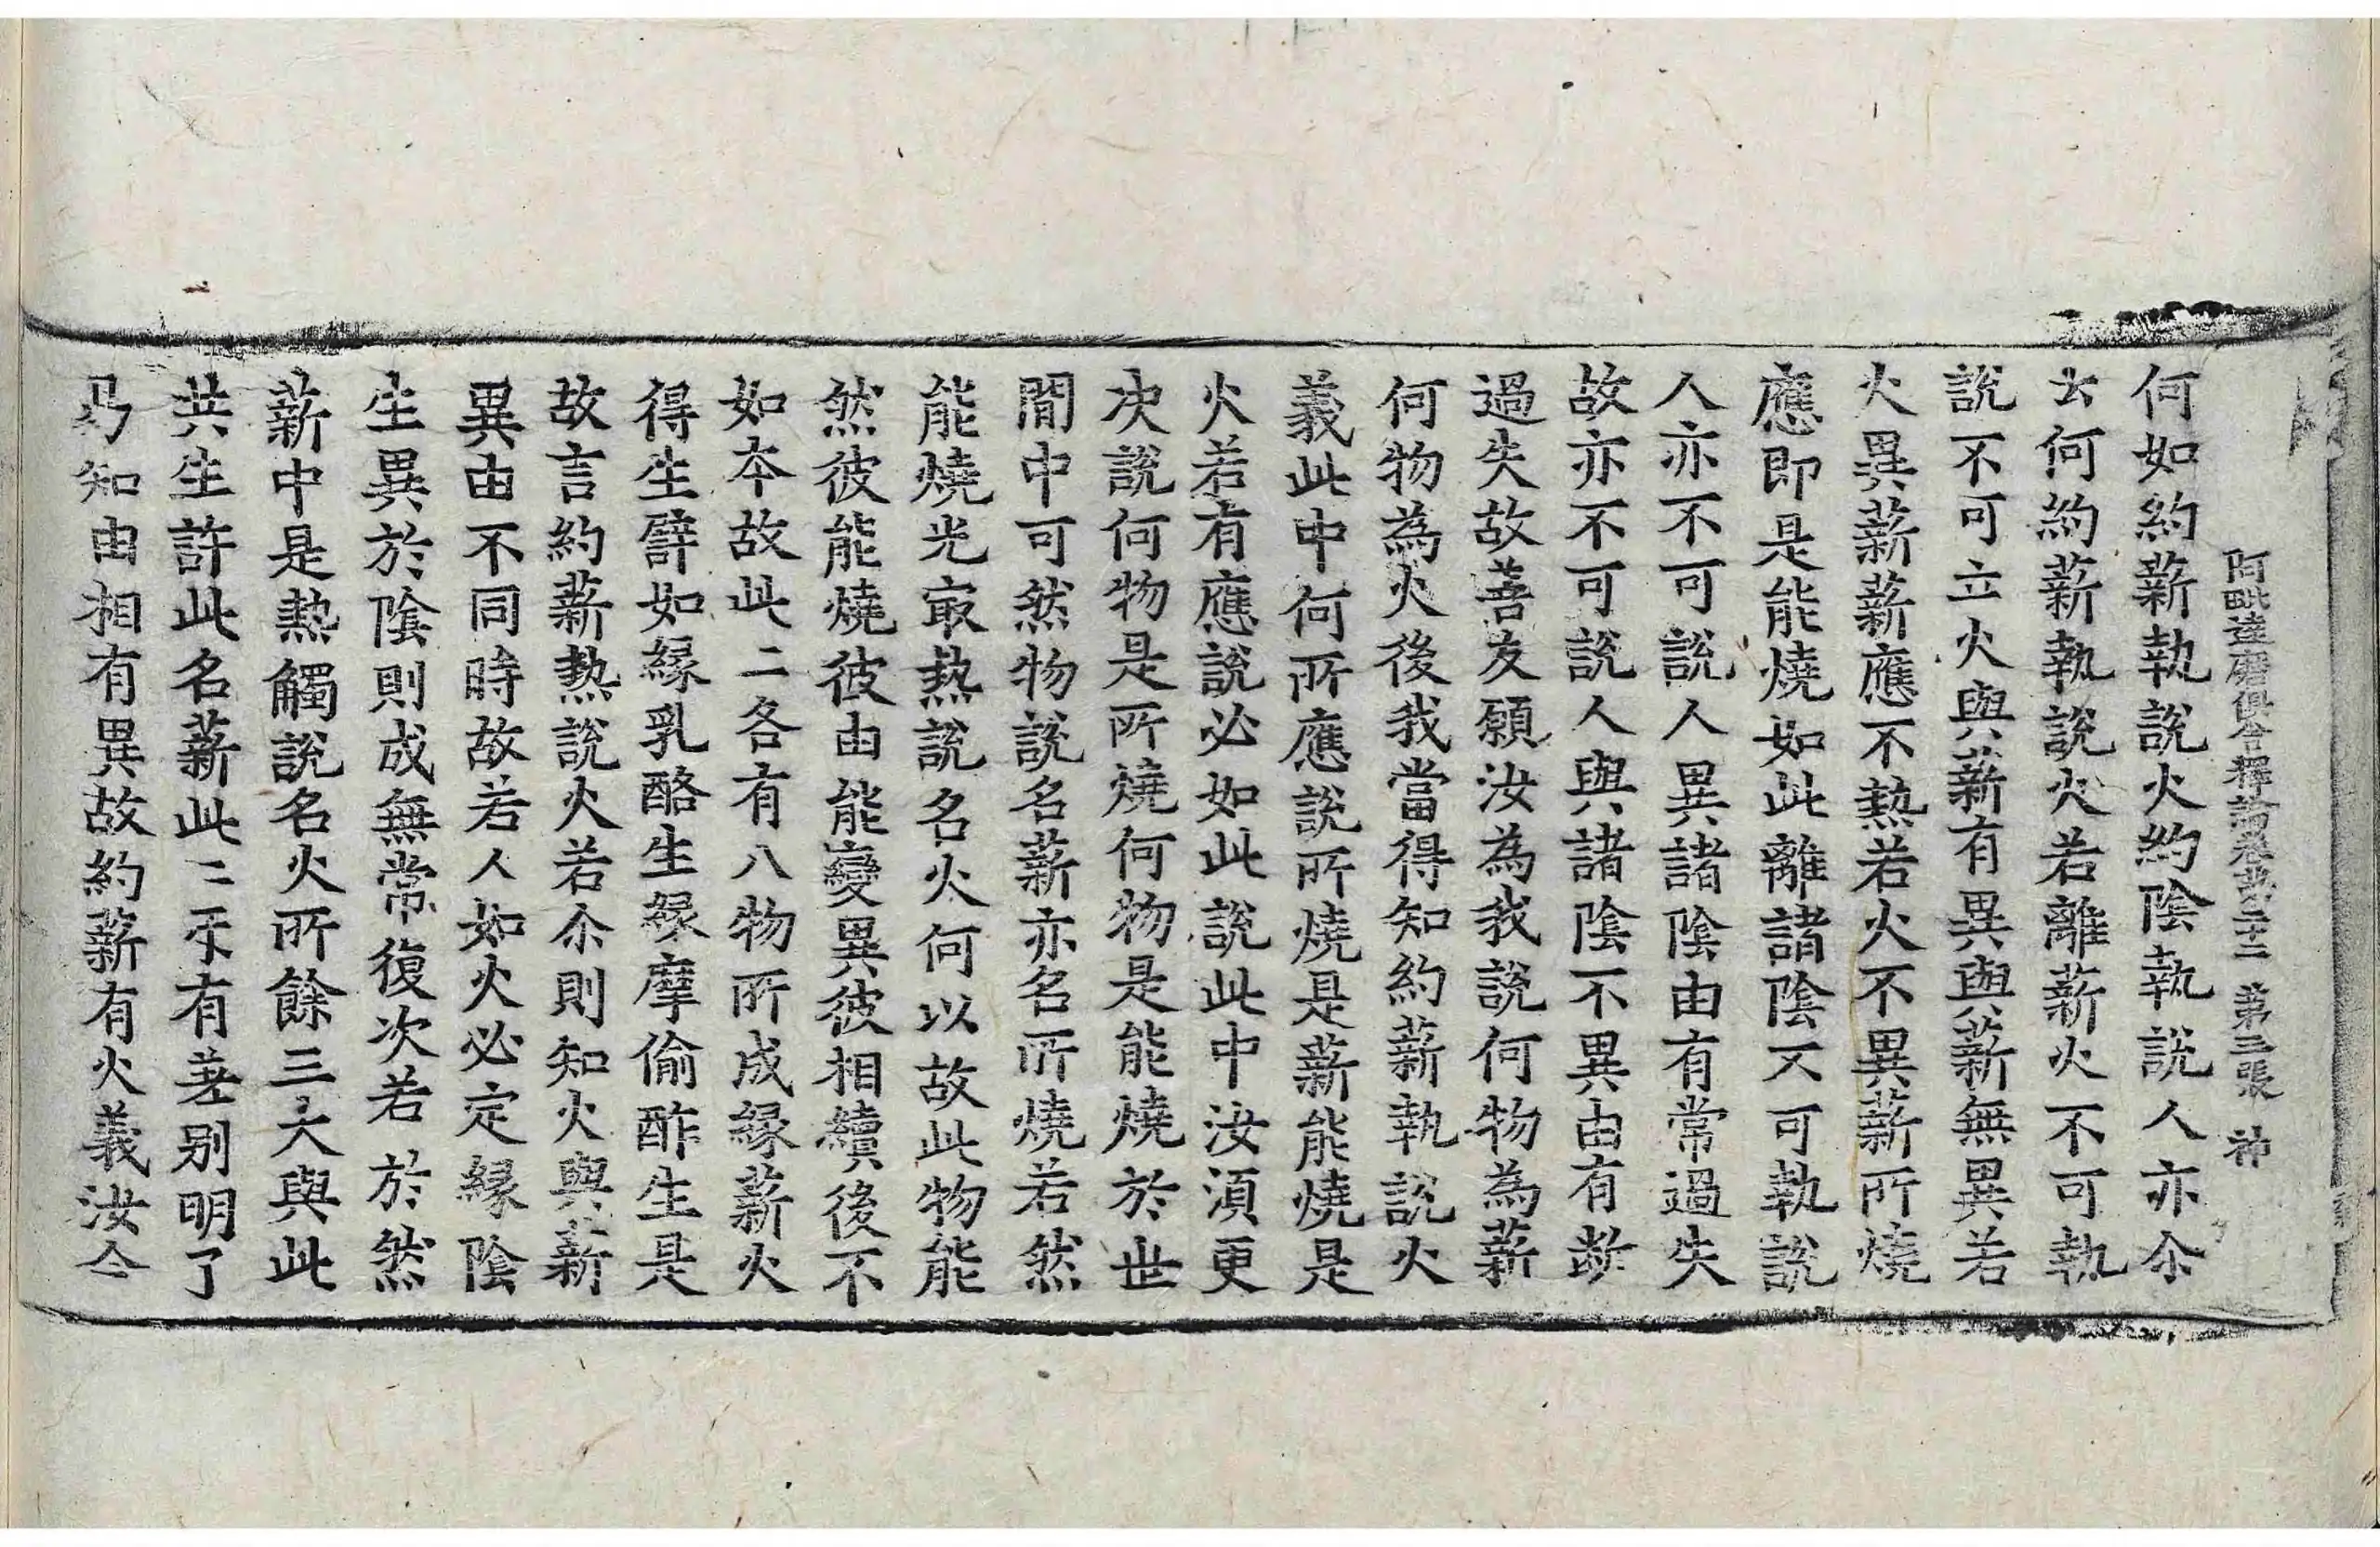 阿毗達磨俱舍釋論卷第二十二 第三張 神
何如約薪執說火約陰執說人亦尒
云何約薪執說火若離薪火不可執
說不可立火與薪有異與薪無異若
火異薪薪應不熱若火不異薪所燒
應即是能燒如此離諸陰不可執說
人亦不可說人異諸陰由有常過失
故亦不可說人與諸陰不異由有斷
過失故善友願汝為我說何物為薪
何物為火後我當得知約薪執說火
義此中何所應說所燒是薪能燒是
火若有應說必如此說此中汝須更
决說何物是所燒何物是能燒於世
間中可然物說名薪亦名所燒若然
能燒光㝡熱說名火何以故此物能
然彼能燒彼由能變異彼相續後不
如本故此二各有八物所成緣薪火
得生譬如緣乳酪生緣摩偷酢生是
故言約薪熱說火若尒則知火與薪
異由不同時故若人如火必定緣陰
生異於陰則成無常復次若於然
薪中是熱觸說名火所餘三大與此
共生許此名薪此二𠆩有差別明了
易知由相有異故約薪有火義汝今